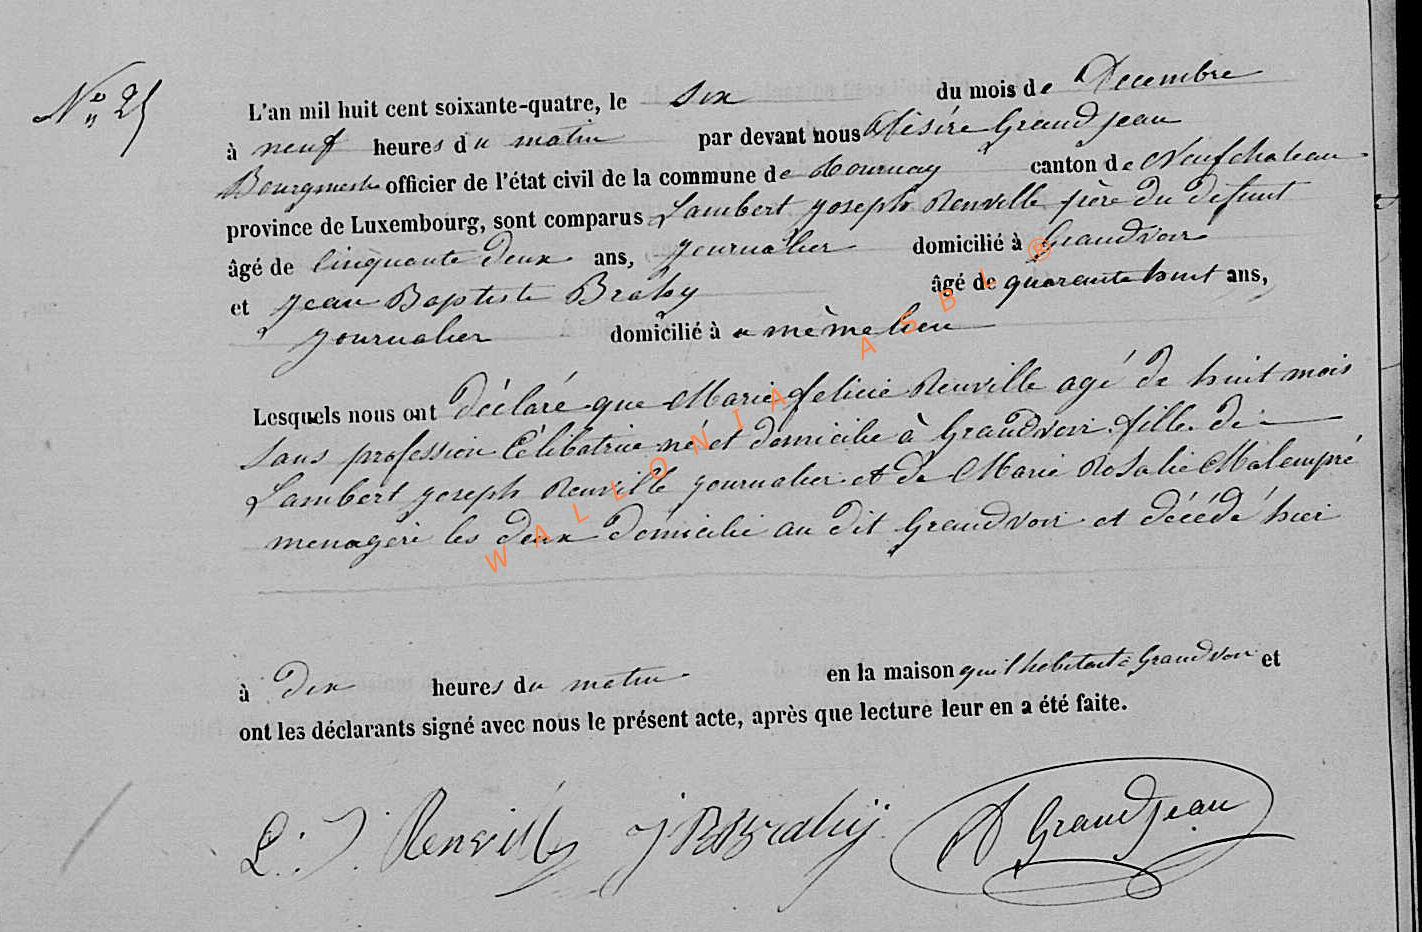 N° 25
L'an mil huit cent soixante-quatre, le six du mois de Decembre
à neuf heures du matin par devant nous Désiré Grandjean
Bourgmestre officier de l'état civil de la commune de Tournay canton de Neufchateau
province de Luxembourg, sont comparus Lambert joseph Renville père du defunt
âgé de cinquante deux ans, journalier domicilié à Grandvoir
et jean Baptiste Brahy âgé de quarante huit ans,
journalier domicilié à u même lieu
Lesquels nous ont déclaré que Marie felicie Renville agé de huit mois
sans profession Célibatrice né et domicilie à Grandvoir fille de
Lambert joseph Renville journalier et de Marie Rosalie Malempré
menagère les deux domicilie au dit Grandvoir et décédé hier
à dix heures du matin en la maison qu'il habitait à Grandvoir et
ont les déclarants signé avec nous le présent acte, après que lecture leur en a été faite.
L. J. Renville JB Brahy D Grandjean
WALLONIA ASBL ®